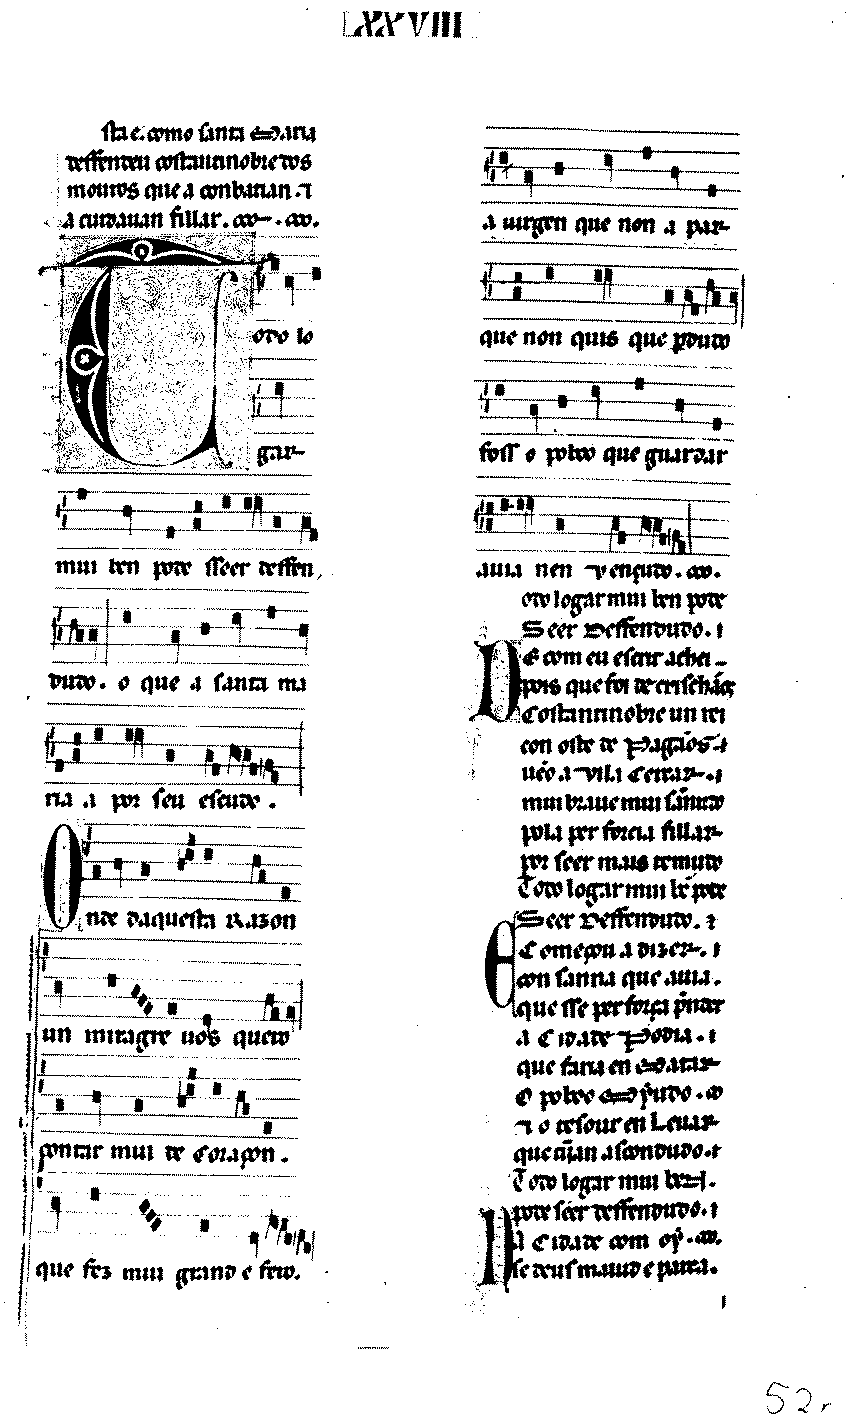 LXXVIII
sta e. como santa Maria
deffendeu costantinobre dos
mouros que a conbatian. ⁊
a cuidauan fillar.
Todo lo
gar
mui ben pode sseer deffen
dudo. o que a santa ma
ria a por seu escudo.
Onde daquesta Razon
un miragre uos quero
contar mui de Coraçon.
que fez mui grand e fero.
a uirgen que non a par
que non quis que perdudo
foss o poboo que guardar
auia nen vençudo.
odo logar mui ben pode
Seer Deffendudo.
De com eu escrit achei
pois que foi de crischãos
Costantinobre un rei
con oste de Pagãos
uẽo a Vila Cercar
mui braue mui sannudo
pola per forcia fillar
por seer mais temudo
Todo logar mui bẽ pode
Seer Deffendudo.
E Começou a dizer.
con sanna que auia.
que sse per força prender
a Cidade Podia.
que faria en Matar
O poboo
⁊ o tesour en Leuar
que tijan ascondudo.
Todo logar mui ben
pode séér deffendudo.
Na Cidade com oý.
se deus maiud e parca.
52r